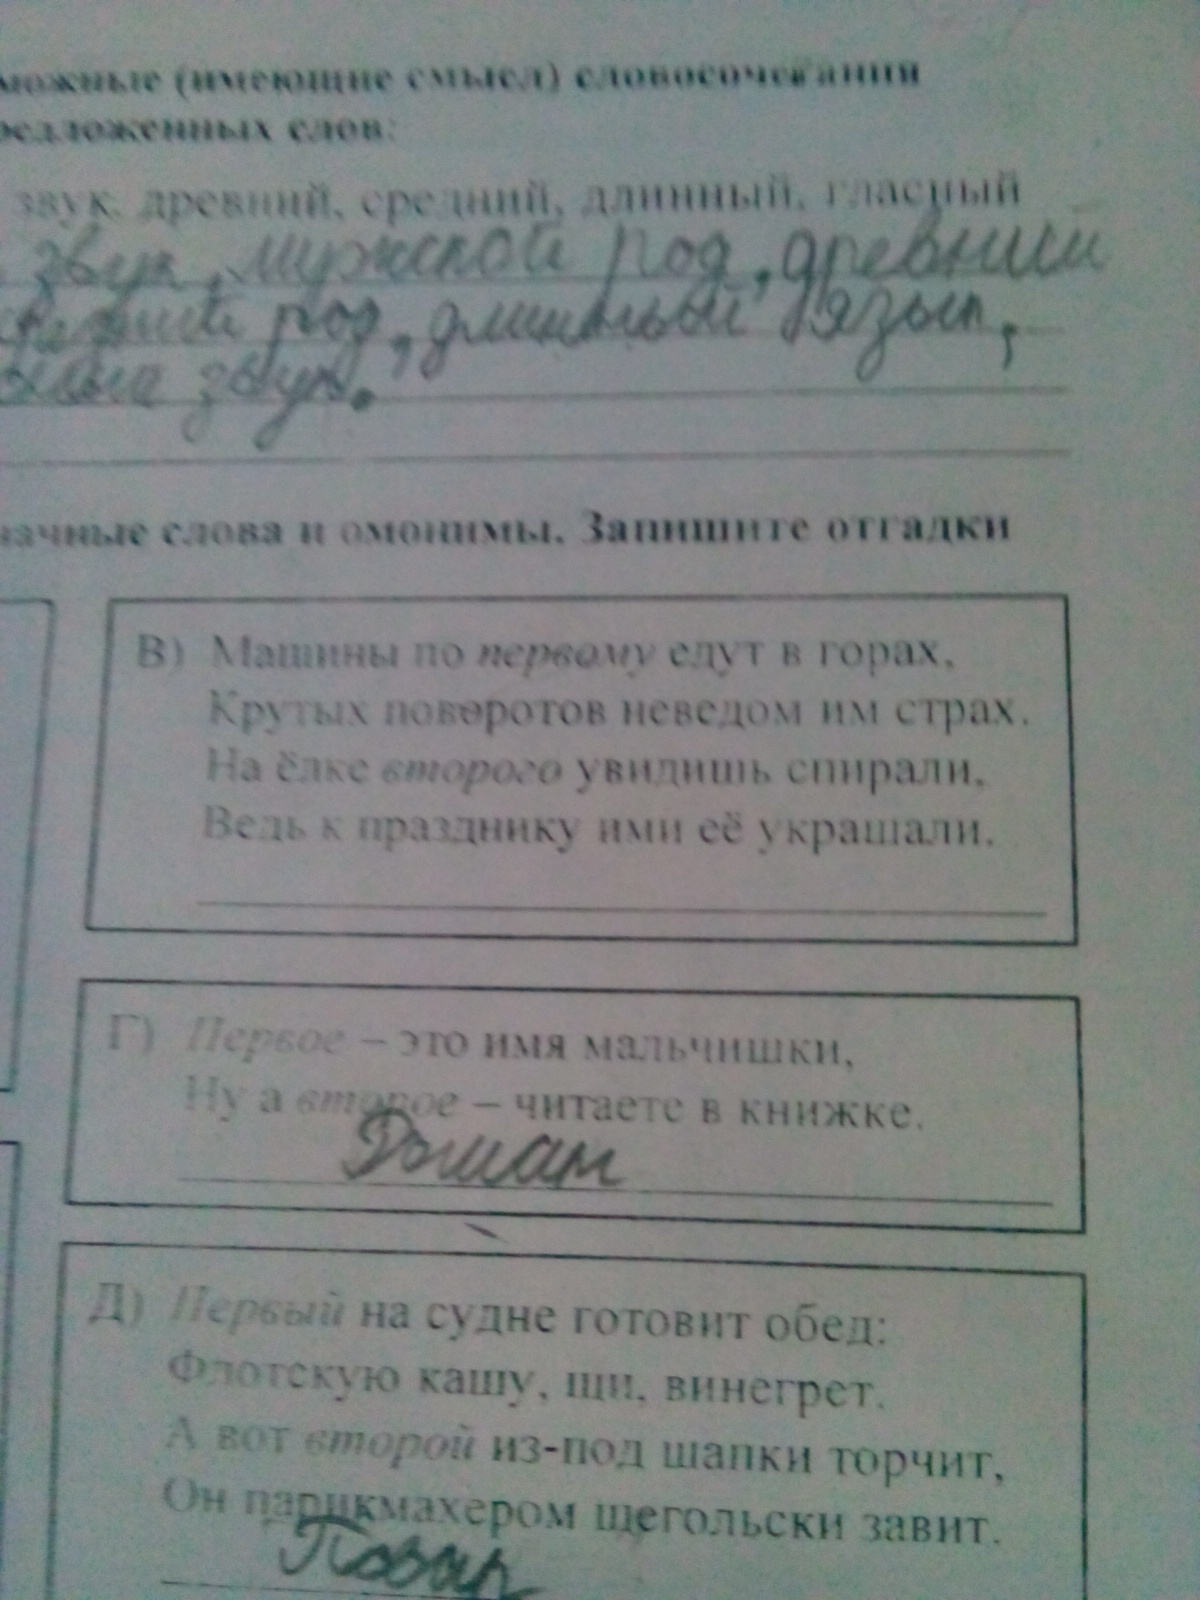 можные (имеющие смысл) словосочетания
редложенных слов:
звук, древний, средний, длинный, гласный
звук, мужской род, древний
род, длинный язык,
звук.
начные слова и омонимы. Запишите отгадки
В) Машины по первому едут в горах,
Крутых поворотов неведом им страх.
На ёлке второго увидишь спирали,
Ведь к празднику ими её украшали.
Г) Первое – это имя мальчишки,
Ну а второе – читаете в книжке.
Роман
Д) Первый на судне готовит обед:
Флотскую кашу, щи, винегрет.
А вот второй из-под шапки торчит,
Он парикмахером щегольски завит.
Повар